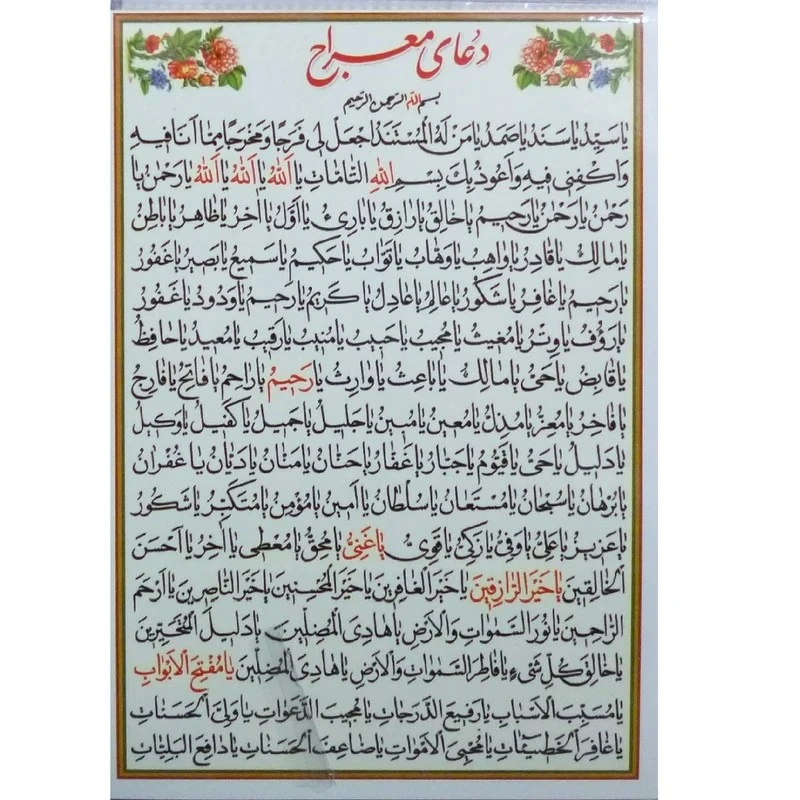 دعای معراج
بسم الله الرحمن الرحیم
یا سَیِّدُ یا سَنَدُ یا صَمَدُ یا مَنْ لَهُ الْمُسْتَنَدُ اجْعَلْ لی فَرَجاً وَ مَخْرَجاً مِمّا اَنَا فیهِ
وَ اکْفِنی فیهِ وَ اَعُوذُ بِكَ بِسْمِ اللهِ التّامّاتِ یا اَللهُ یا اَللهُ یا اَللهُ یا رَحْمنُ یا
رَحْمنُ یا رَحْمنُ یا رَحیمُ یا خالِقُ یا رازِقُ یا بارِئُ یا اَوَّلُ یا آخِرُ یا ظاهِرُ یا باطِنُ
یا مالِكُ یا قادِرُ یا واهِبُ یا وَهّابُ یا تَوّابُ یا حَکیمُ یا سَمیعُ یا بَصیرُ یا غَفُورُ
یا رَحیمُ یا غافِرُ یا شَکُورُ یا عالِمُ یا عادِلُ یا کَریمُ یا رَحیمُ یا وَدُودُ یا غَفُورُ
یا رَؤُفُ یا وِتْرُ یا مُغیثُ یا مُجیبُ یا حَبیبُ یا مُنیبُ یا رَقیبُ یا مُعیدُ یا حافِظُ
یا قابِضُ یا حَیُّ یا مالِكُ یا باعِثُ یا وارِثُ یا رَحیمُ یا راحِمُ یا فاتِحُ یا فارِجُ
یا فاخِرُ یا مُعِزُّ یا مُذِلُّ یا مُعینُ یا مُبینُ یا جَلیلُ یا جَمیلُ یا کَفیلُ یا وَکیلُ
یا دَلیلُ یا حَیُّ یا قَیُّومُ یا جَبّارُ یا غَفّارُ یا حَنّانُ یا مَنّانُ یا دَیّانُ یا غُفْرانُ
یا بُرْهانُ یا سُبْحانُ یا مُسْتَعانُ یا سُلْطانُ یا اَمینُ یا مُؤْمِنُ یا مُتَکَبِّرُ یا شَکُورُ
یا عَزیزُ یا عَلِیُّ یا وَفِیُّ یا زَکِیُّ یا قَوِیُّ یا غَنِیُّ یا مُحِقُّ یا مُعْطی یا آخِرُ یا اَحْسَنَ
الْخالِقینَ یا خَیْرَ الرّازِقینَ یا خَیْرَ الْغافِرینَ یا خَیْرَ الْمُحْسِنینَ یا خَیْرَ النّاصِرینَ یا اَرْحَمَ
الرّاحِمینَ یا نُورَ السَّمواتِ وَ الْاَرْضِ یا هادِیَ الْمُضِلّینَ یا دَلیلَ الْمُتَحَیِّرینَ
یا خالِقَ کُلِّ شَیْءٍ یا فاطِرَ السَّمواتِ وَ الْاَرْضِ یا هادِیَ الْمُضِلّینَ یا مُفَتِّحَ الْاَبْوابِ
یا مُسَبِّبَ الْاَسْبابِ یا رَفیعَ الدَّرَجاتِ یا مُجیبَ الدَّعَواتِ یا وَلِیَّ الْحَسَناتِ
یا غافِرَ الْخَطیئاتِ یا مُحْیِیَ الْاَمْواتِ یا ضاعِفَ الْحَسَناتِ یا دافِعَ الْبَلِیّاتِ